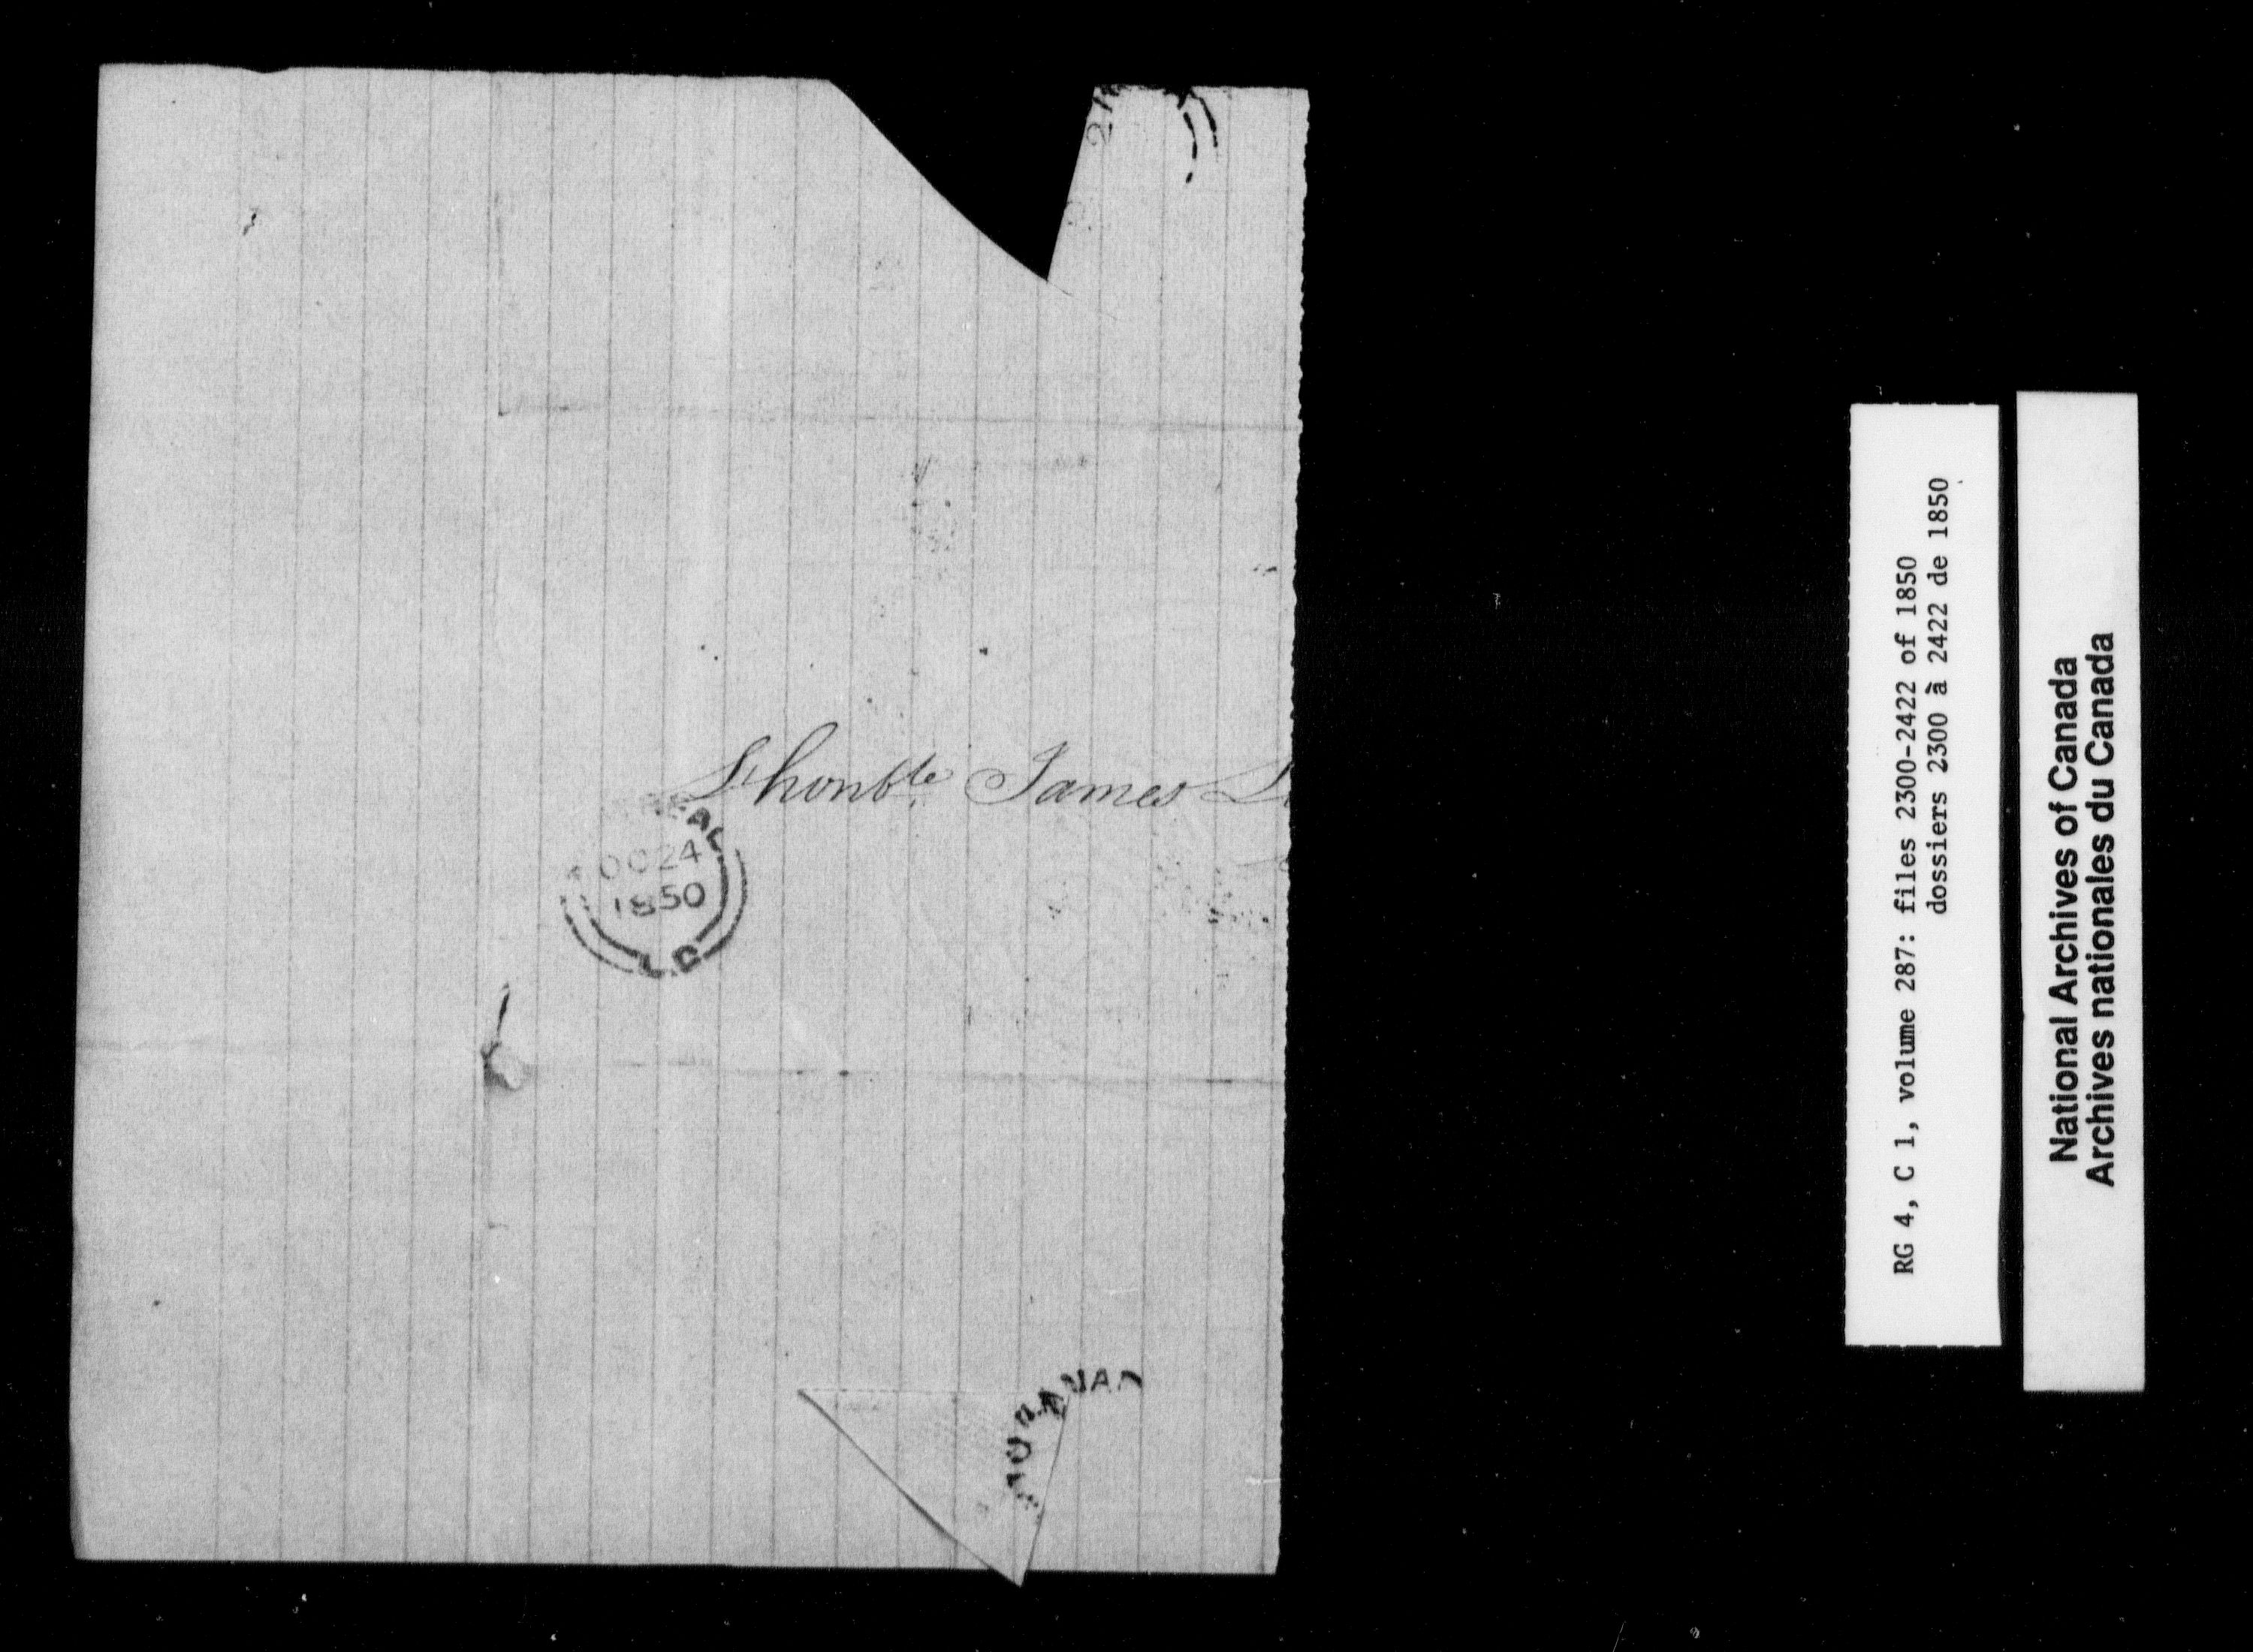 L'honble James
EAL
OC 24
1850
L.C
RG 4, C 1, volume 287: files 2300-2422 of 1850
dossiers 2300 à 2422 de 1850
National Archives of Canada
Archives nationales du Canada